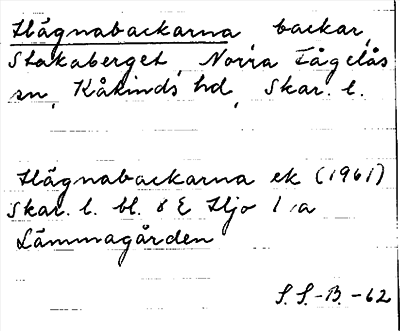 Hägnabackarna, backar,
Stakaberget, Norra Fågelås
sn, Kåkinds hd, Skar. l.
Hägnabackarna ek (1961)
Skar. l. bl. 8 E Hjo 1 a
Lämmagården
S. S.-B. -62